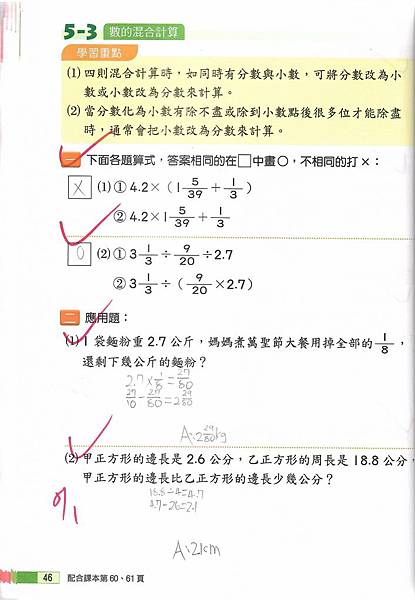 5-3 數的混合計算
學習重點
(1) 四則混合計算時，如同時有分數與小數，可將分數改為小
數或小數改為分數來計算。
(2) 當分數化為小數有除不盡或除到小數點後很多位才能除盡
時，通常會把小數改為分數來計算。
一 下面各題算式，答案相同的在□中畫○，不相同的打×：
× (1) ① 4.2×(1 5/39 + 1/3)
② 4.2×1 5/39 + 1/3
0 (2) ① 3 1/3 ÷ 9/20 ÷ 2.7
② 3 1/3 ÷ (9/20 × 2.7)
二 應用題：
(1) 1 袋麵粉重 2.7 公斤，媽媽煮萬聖節大餐用掉全部的 1/8，
還剩下幾公斤的麵粉？
2.7 × 1/8 = 27/80
27/10 - 27/80 = 2 29/80
A: 2 29/80 kg
(2) 甲正方形的邊長是 2.6 公分，乙正方形的周長是 18.8 公分，
甲正方形的邊長比乙正方形的邊長少幾公分？
18.8÷4=4.7
4.7-2.6=2.1
A: 2.1cm
46 配合課本第 60、61 頁